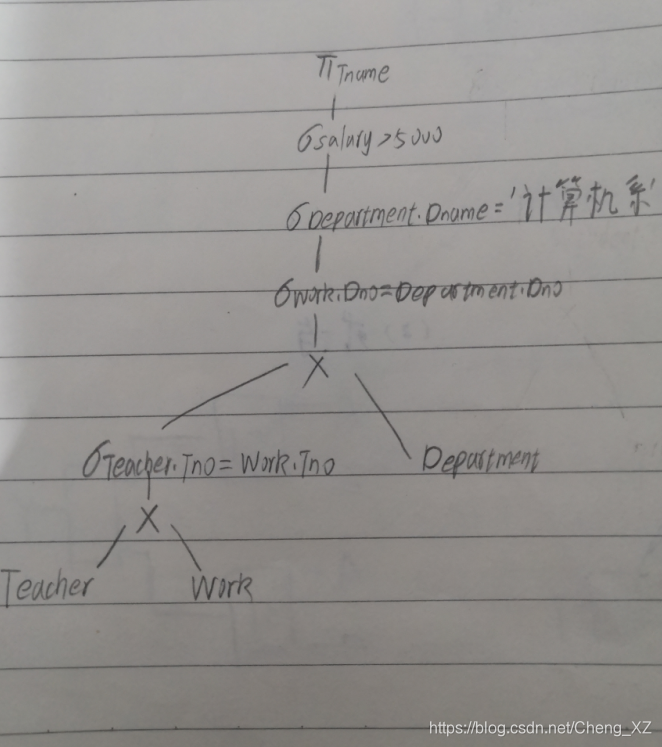 π Tname
σ salary >5000
σ Department.Dname='计算机系'
σ Work.Dno=Department.Dno
X
σ Teacher.Tno= Work.Tno
Department
X
Teacher
Work
https://blog.csdn.net/Cheng_XZ